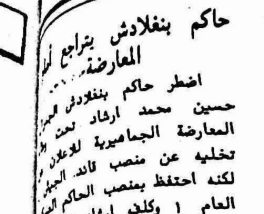 حاكم بنغلادش يتراجع
المعارضة
اضطر حاكم بنغلادش
حسين محمد ارشاد تحت
المعارضة الجماهيرية للاعلان
تخليه عن منصب قائد الجيش
لكنه احتفظ بمنصب الحاكم
العام وكلف